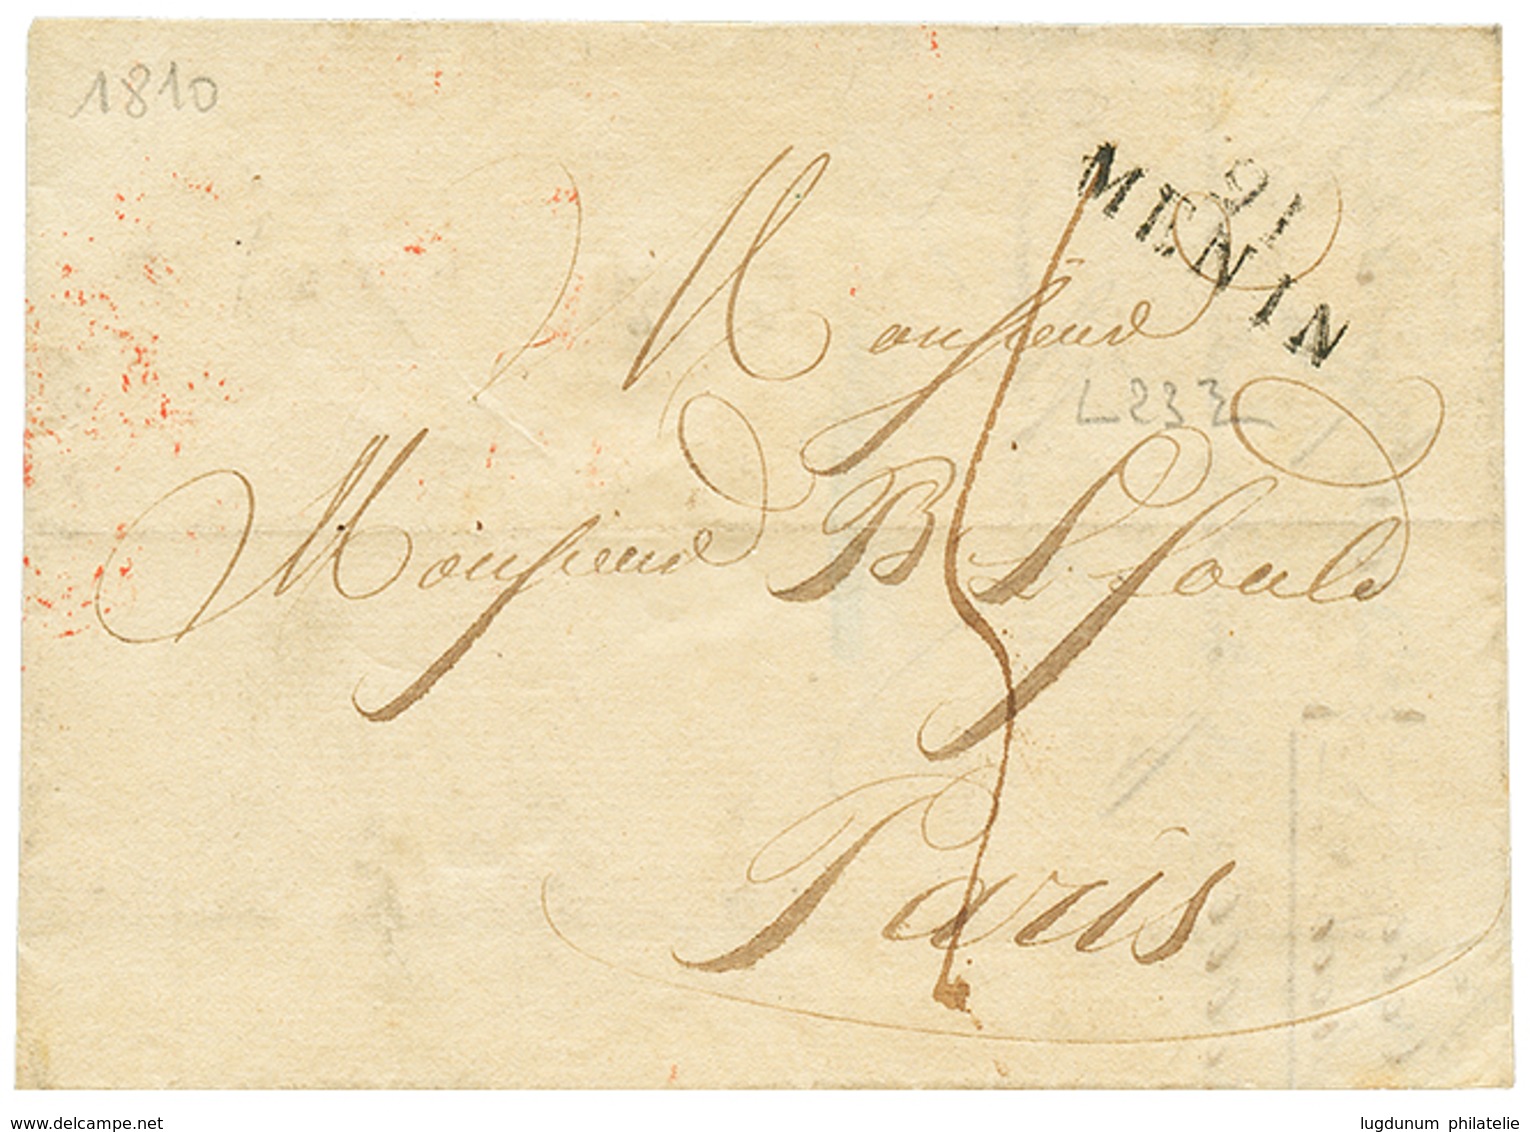 1810
91
MENIN
Monsieur
L232
Monsieur B L fould
Paris
www.delcampe.net
lugdunum philatelie